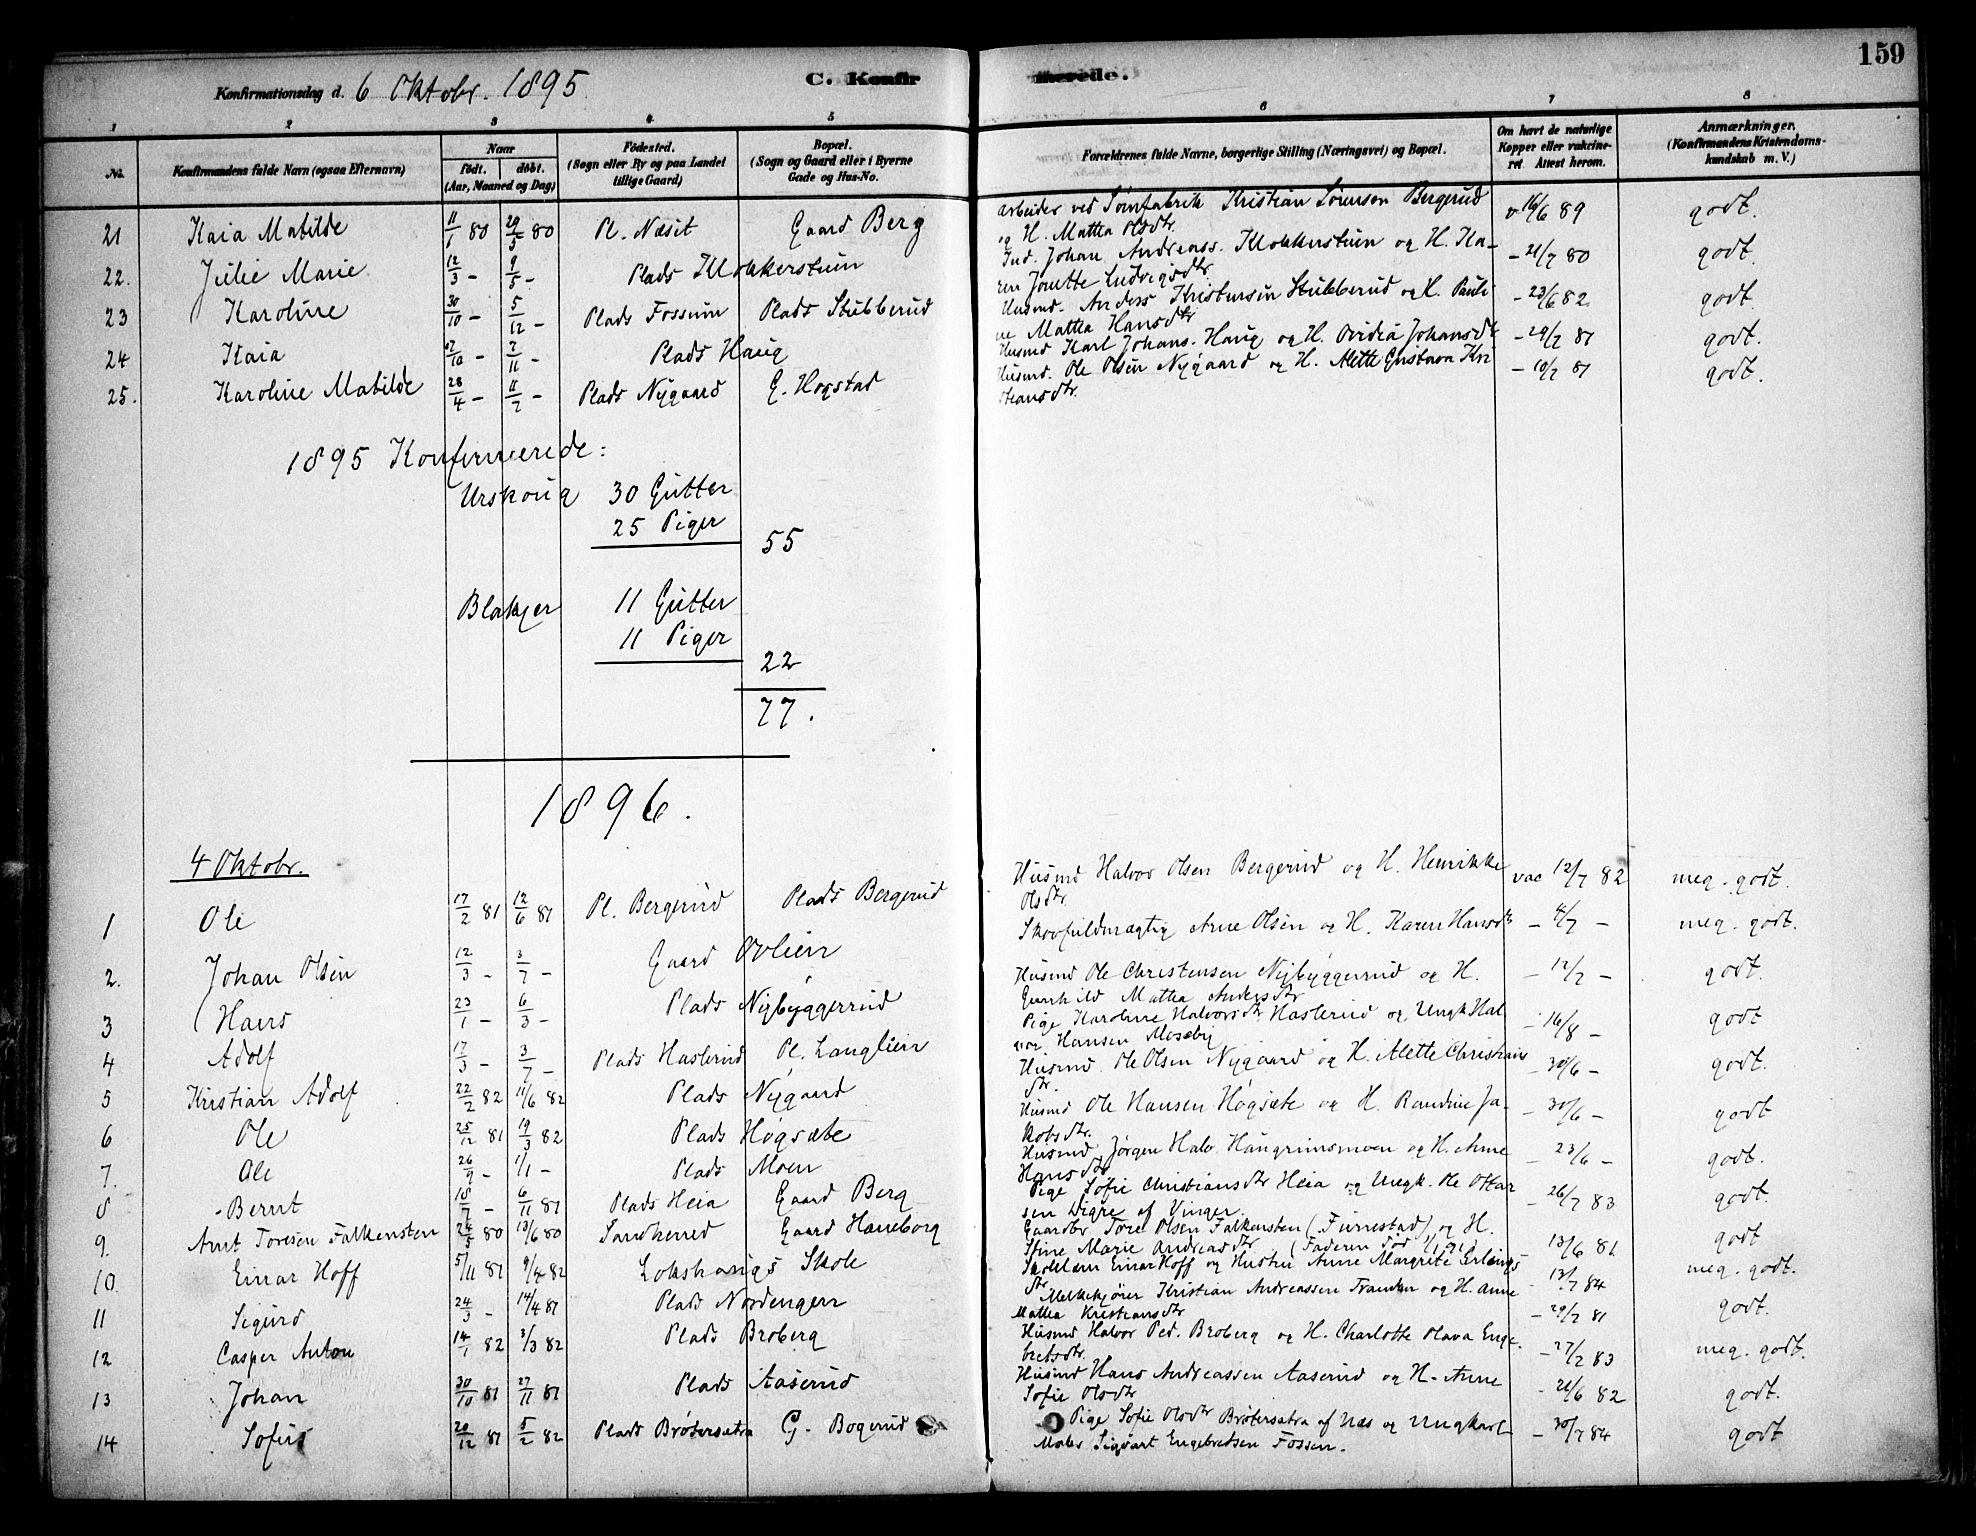 159
Konfirmationsdag d. 6 Oktobr. 1895
C. Konfirmerede.
1 2 3 4 5 6 7 8
No. Konfirmandens fulde Navn (ogsaa Efternavn) Naar født. døbt. (Aar, Maaned og Dag) Fødested. (Sogn eller By og paa Landet tillige Gaard) Bopæl. (Sogn og Gaard eller i Byerne Gade og Hus-No. Forældrenes fulde Navne, borgerlige Stilling (Næringsvei) og Bopæl. Om havt de naturlige Kopper eller vaccineret. Attest herom. Anmærkninger. (Konfirmandens Kristendomskundskab m. V.)
21 Kaia Matilde 11/1 80 29/5 80 Pl. Næsit Gaard Berg Arbeider ved Sømfabrik Kristian Sørensen Bergerud v 16/6 89 godt.
og H. Mathea Olsdtr
22. Julie Marie 12/3 - 9/5 - Plads Klokkerstuen Ind. Johan Andreass. Klokkerstuen og H. Ka- - 21/7 80 godt.
ren Jonette Ludvigsdtr.
23 Karoline 30/10 - 5/12 - Plads Fossum Plads Stubberud Husmd. Anders Kristensen Stubberud og H. Pauli- - 23/6 82 godt.
ne Mathea Hansdtr
24 Kaia 7/10 - 7/11 - Plads Haug Husmd Karl Johans. Haug og H. Ovidia Johansdtr - 29/7 81 godt.
25. Karoline Matilde 28/4 - 11/7 - Plads Nygaard G. Hogstad Husmd. Ole Olsen Nygaard og H. Alette Gustava Kri - 10/7 81 godt.
stiansdtr.
1895 Konfirmerede:
Urskoug 30 Gutter
25 Piger
55
Blakjer 11 Gutter
11 Piger
22
77.
1896.
4 Oktobr.
1 Ole 17/2 81 12/6 81 Pl. Bergerud Plads Bergerud Husmd Halvor Olsen Bergerud og H. Henrikke vac 12/7 82 meg. godt.
Olsdtr.
2. Johan Olsen 12/3 - 3/7 - Gaard Ovlien Skovfuldmægtig Arne Olsen og H. Karen Hansdtr - 4/7 - meg. godt.
3 Hans 23/1 - 6/3 - Plads Nybyggerud Husmd Ole Christensen Nybyggerud og H. - 12/7 - godt.
Gunhild Mathea Andersdtr
4 Adolf 17/3 - 3/7 - Plads Haslerud Pl. Langlien Pige Karoline Halvorsdtr Haslerud og Ungk Hal - 16/8 - godt
vor Hansen Moseby
5 Kristian Adolf 22/2 82 11/6 82 Plads Nygaard Husmd. Ole Olsen Nygaard og H. Alette Christians - 30/6 - godt.
dtr.
6 Ole 25/12 81 19/3 82 Plads Høgsæte Husmd Ole Hansen Høgsæte og H. Randine Ja- - 30/6 - godt
kobsdtr.
7. Ole 26/9 - 1/1 - Plads Moen Husmd. Jørgen Halv. Haugrimsmoen og H. Anne - 23/6 - godt.
Hansdtr
8 Bernt 18/7 - 6/11 81 Plads Heia Gaard Berg Pige Sofie Christiansdtr Heia og Ungk. Ole Ottar - 26/7 83 godt.
sen Digre af Vinger.
9. Arnt Toresen Falkensten 24/5 80 13/6 80 Sandherred Gaard Haneborg Gaardbr Tore Olsen Falkensten (Furnestad) og H. - 13/6 81 godt
Stine Marie Andreasdtr (Faderen død 1/1 91)
10. Einar Hoff 5/11 81 9/4 82 Lokshaugs Skole Skolelærer Einar Hoff og Hustru Anne Margrete Erlings - 13/7 84 meg. godt.
dtr
11 Sigurd 24/3 - 14/4 81 Plads Nordengen Melkekjører Kristian Andreassen Frander og H. Anne - 29/7 81 godt.
Mathea Kristiansdtr
12 Casper Anton 14/1 82 3/3 82 Plads Broberg Husmd Halvor Ped. Broberg og H. Charlotte Olava Enge - 27/2 83 meg. godt.
bretsdtr.
13 Johan 30/10 81 27/11 81 Plads Aaserud Husmd Hans Andreassen Aaserud og H. Anne - 21/6 82 godt.
Sofie Olsdtr
14 Sofus 20/12 81 5/2 82 Plads Brøtersætra G. Bogerud Pige Sofie Olsdtr Brøtersætra af Næs og Ungkarl - 30/7 84 godt
Maler Sigvart Engebretsen Fossen.